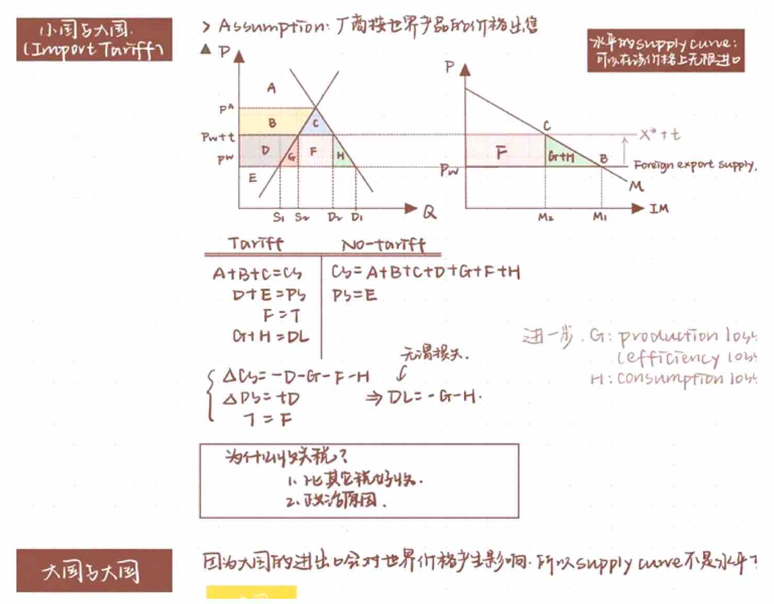 小国与大国.
(Import Tariff)
> Assumption: 厂商按世界产品的价格出售
水平的supply curve:
可以在该价格上无限进口
P
A
pᴬ
B
C
Pw+t
D
G
F
H
pw
E
S₁ S₂ D₂ D₁
Q
P
C
X*+t
F
G+H
B
Foreign export supply.
Pw
M
M₂ M₁
IM
Tariff No-tariff
A+B+C=Cs Cs=A+B+C+D+G+F+H
D+E=Ps Ps=E
F=T
G+H=DL
无谓损失.
进一步. G: production loss
(efficiency loss
H: consumption loss
△Cs=-D-G-F-H
△Ps=+D ⇒ DL=-G-H.
T=F
为什么收关税?
1. 比其它税好收.
2. 政治原因.
大国与大国
因为大国的进出口会对世界价格产生影响. 所以supply curve不是水平